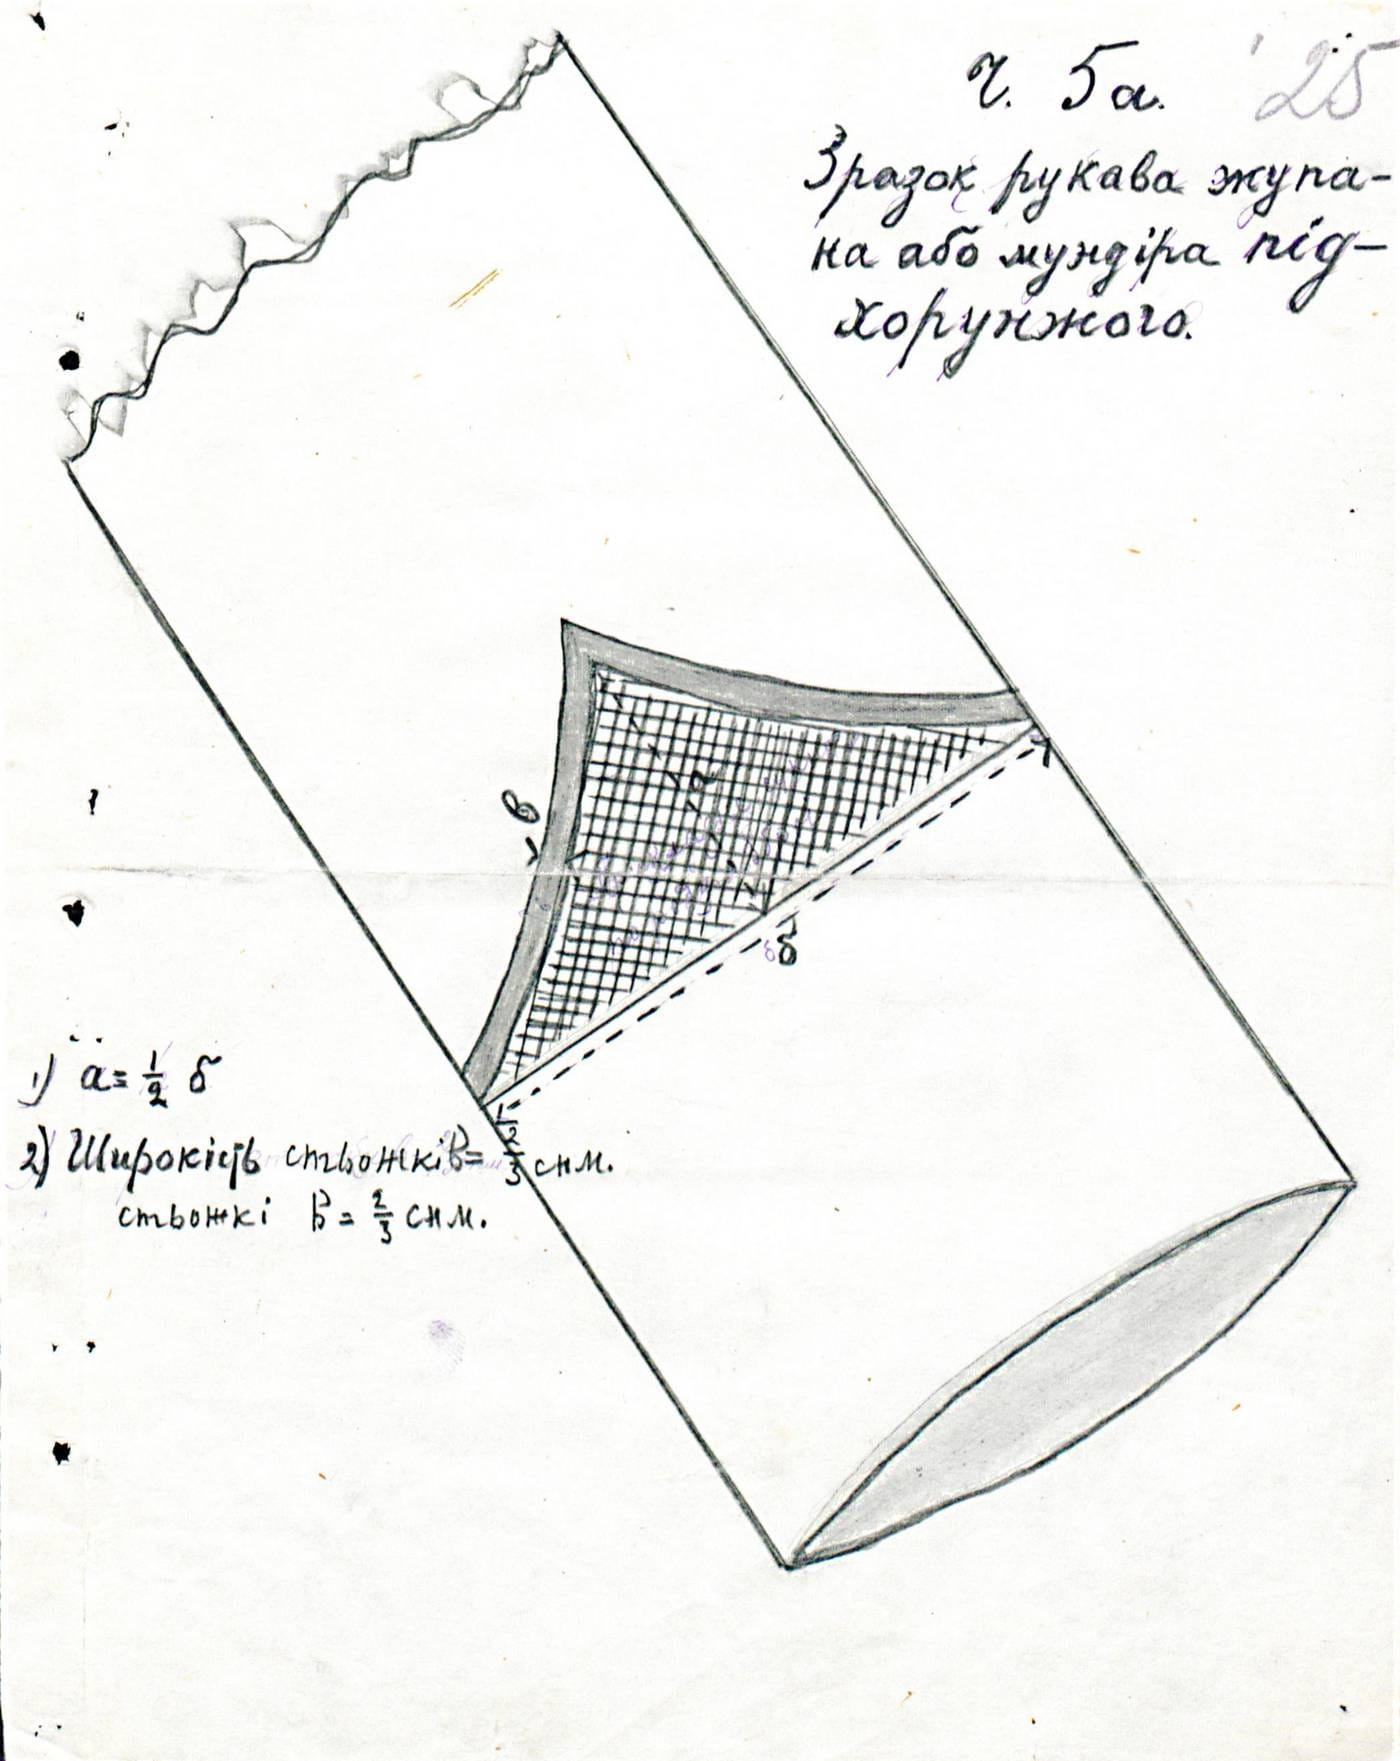 Ч. 5а. 25
Зразок рукава жупа-
на або мундіра під-
хорунжого.
в
а
б
1) а = 1/2 б
2) Широкість стьожкі в = 2/3 снм.
стьожкі в = 2/3 снм.